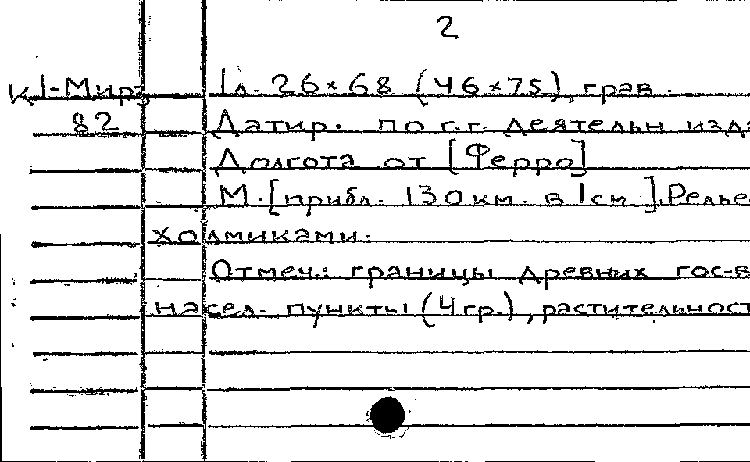 2
К 1-Мир2 1 л. 26×68 (46×75), грав.
82 Датир. по г.г. деятельн изда
Долгота от [Ферро]
М.[прибл. 130 км. в 1 см.]. Релье
холмиками.
Отмеч.: границы древних гос-в
насел. пункты (4 гр.), растительност